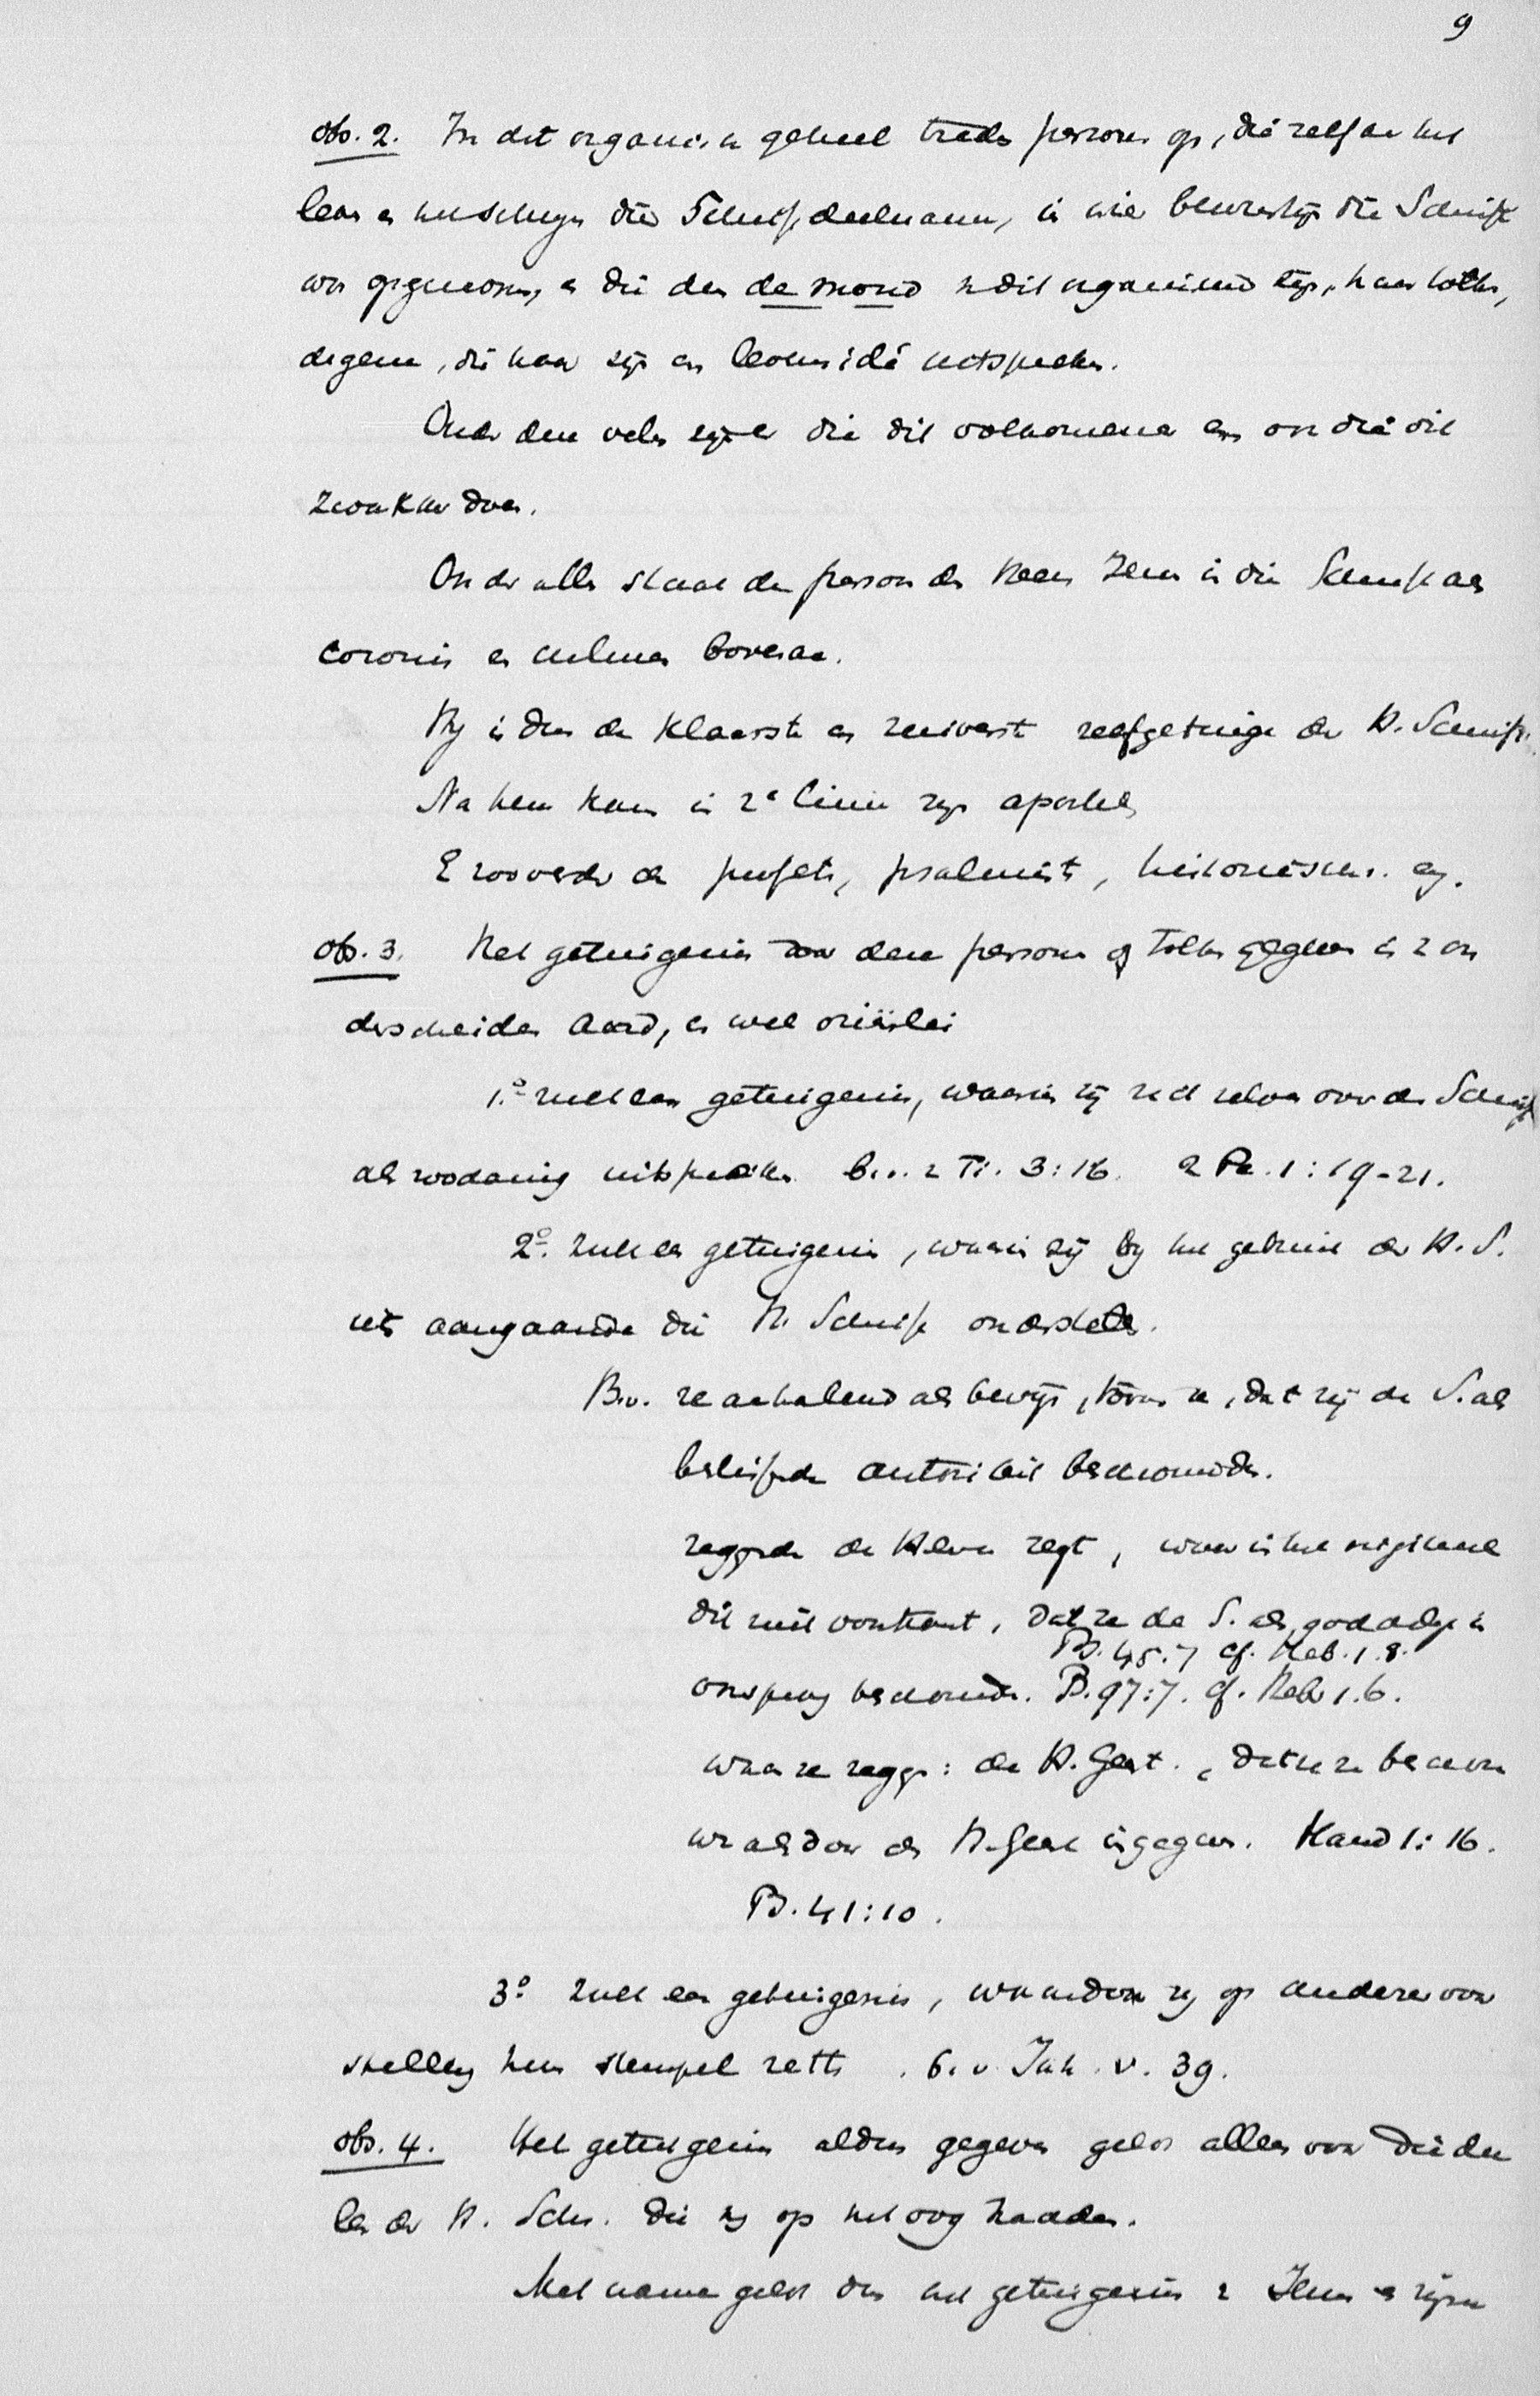 9
obs. 2. In dit organisch geheel treden personen op, die zelf aan het
leven en die Schrift deelnamen, in wier bewustzijn die Schrift
was opgenomen, en die dus de mond v dit organisme zijn, haar tolken,
degene, die haar zijn en levensidé uitspreken.
Onder deze velen zijn er die dit volkomener en ook die dit
zwakker doen.
Onder allen staat de persoon des Heeren Jezus in die Schrift als
coronis en culmen bovenaan.
Hij is dus de klaarste en zuiverste zelfgetuige der H. Schrift.
Na hem komen in 2e linie zijn apostelen
En zoo verder de profeten, psalmisten, historieschr.
obs. 3. Het getuigenis door deze personen of tolken gegeven is v on
derscheiden aard, en wel drieërlei
1.° zulk een getuigenis, waarin zij zich zelven over de Schrift
als zoodanig uitspreken b.v. 2 Ti. 3:16. 2 Pe. 1:19-21.
2°. Zulk een getuigenis, waarin zij bij het gebruik der H.S.
iets aangaande die H. Schrift onderstellen.
B.v. ze aanhalend als bewijs, toonen ze, dat zij de S. als
beslissende autoriteit beschouwden.
zeggende de Heere zegt, waar in het origineel
dit niet voorkomt, dat ze de S. als goddelijk in
Ps. 45.7 cf. Heb. 1.8.
oorsprong beschouwden. Ps. 97:7. cf. Hebr 1.6.
waar ze zeggen: de H. Geest., dat ze ze beschou
wen als door den H. Geest ingegeven. Hand 1:16.
Ps. 41:10.
3° Zulk een getuigenis, waardoor zij op andere voor
stelling hun stempel zetten. b.v Joh. v. 39.
obs. 4. Het getuigenis aldus gegeven geldt alleen voor die dee
len der H. Schr. die zij op het oog hadden.
Met name geldt dus het getuigenis v Jezus en zijne